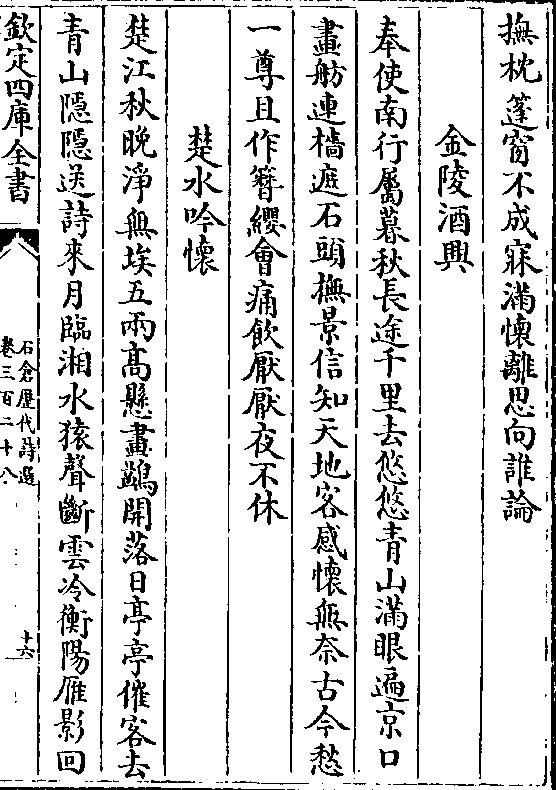 撫枕蓬窗不成寐滿懷離思向誰論
金陵酒興
奉使南行屬暮秋長途千里去悠悠青山滿眼遍京口
畫舫連檣遮石頭撫景信知天地客感懷無奈古今愁
一尊且作簪纓會痛飲厭厭夜不休
楚水吟懷
楚江秋晚淨無埃五兩髙懸畫鷁開落日亭亭催客去
青山隱隱送詩來月臨湘水猿聲斷雲冷衡陽雁影回
欽定四庫全書
石倉歷代詩選
卷三百二十八
十六